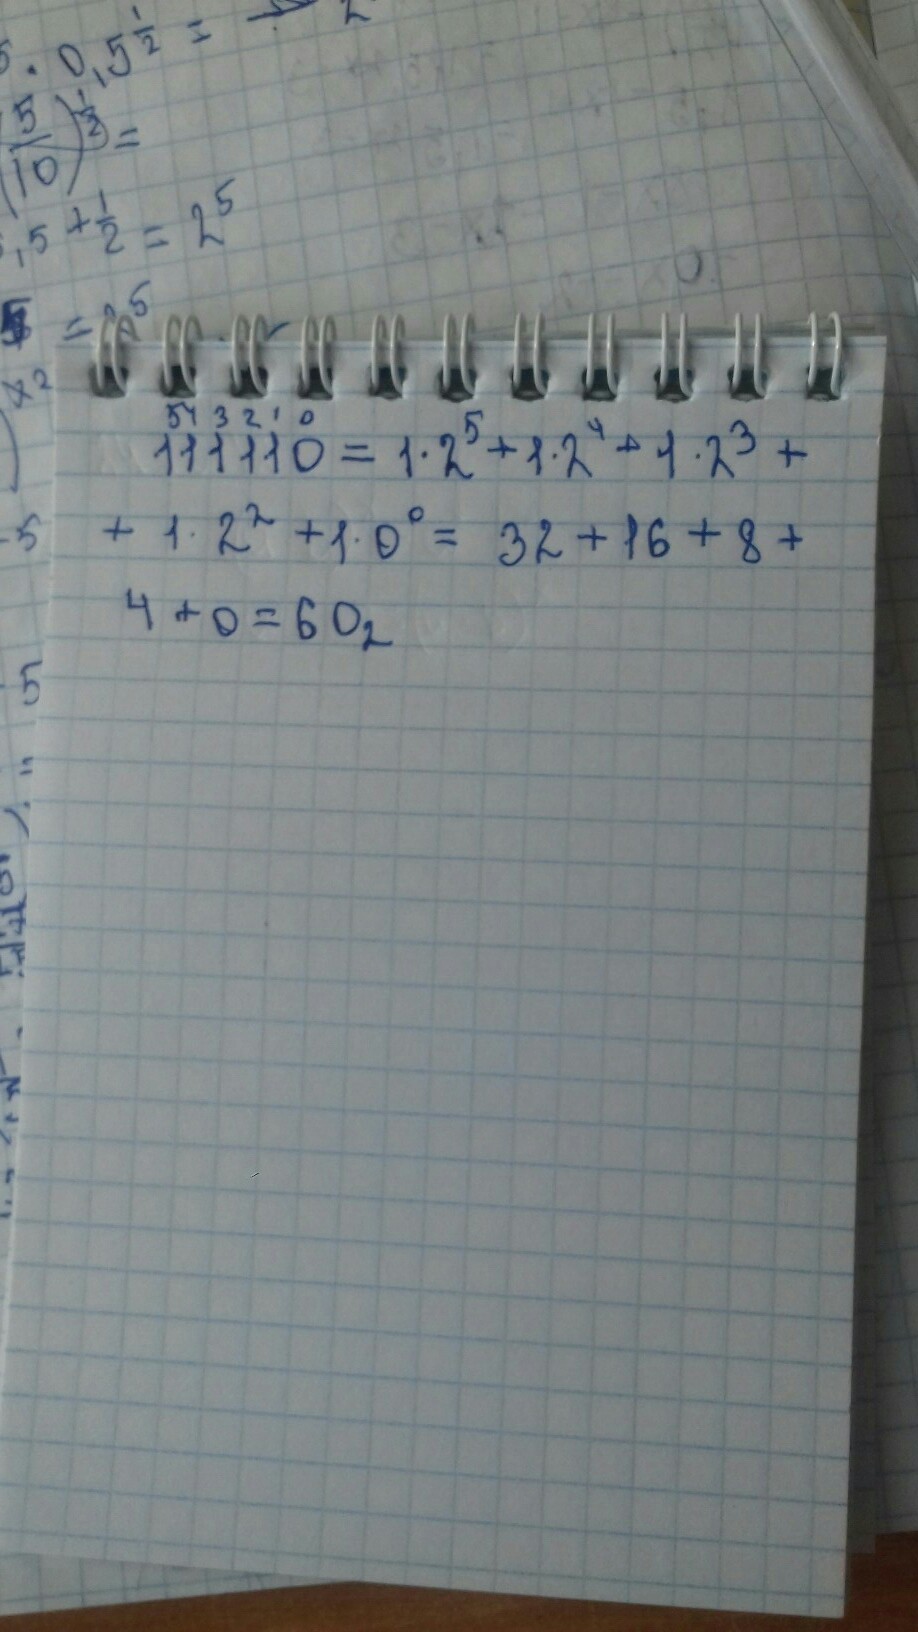 5 · 0,5^½ =
(5/10)^½ =
,5 + ½ = 2⁵
= 2⁵
x2
5 4 3 2 1 0
111110 = 1·2⁵ + 1·2⁴ + 1·2³ +
+ 1·2² + 1·0⁰ = 32 + 16 + 8 +
4 + 0 = 60₂
-5
5